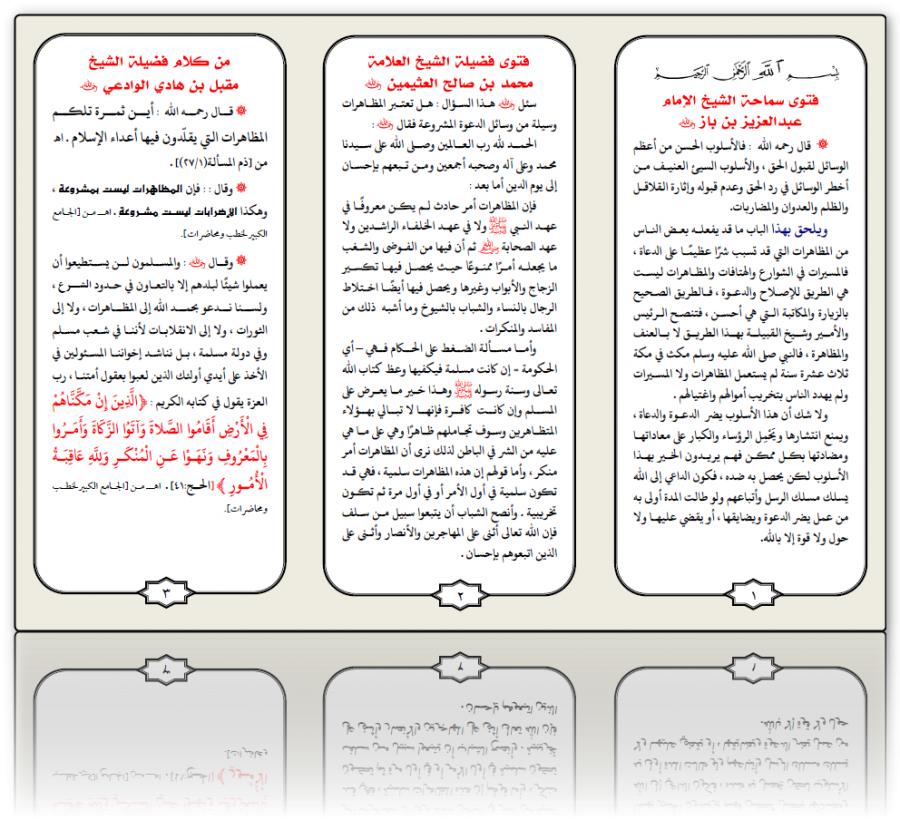 بِسْمِ اللَّهِ الرَّحْمَٰنِ الرَّحِيمِ
فتوى سماحة الشيخ الإمام
عبدالعزيز بن باز رحمه الله
قال رحمه الله : فالأسلوب الحسن من أعظم
الوسائل لقبول الحق ، والأسلوب السيئ العنيف من
أخطر الوسائل في رد الحق وعدم قبوله وإثارة القلاقل
والظلم والعدوان والمضاربات.
ويلحق بهذا الباب ما قد يفعله بعض الناس
من المظاهرات التي قد تسبب شرًا عظيمًا على الدعاة ،
فالمسيرات في الشوارع والهتافات والمظاهرات ليست
هي الطريق للإصلاح والدعوة ، فالطريق الصحيح
بالزيارة والمكاتبة التي هي أحسن ، فتنصح الرئيس
والأمير وشيخ القبيلة بهذا الطريق لا بالعنف
والمظاهرة ، فالنبي صلى الله عليه وسلم مكث في مكة
ثلاث عشرة سنة لم يستعمل المظاهرات ولا المسيرات
ولم يهدد الناس بتخريب أموالهم واغتيالهم .
ولا شك أن هذا الأسلوب يضر الدعوة والدعاة ،
ويمنع انتشارها ويحمل الرؤساء والكبار على معاداتها
ومضادتها بكل ممكن فهم يريدون الخير بهذا
الأسلوب لكن يحصل به ضده ، فكون الداعي إلى الله
يسلك مسلك الرسل وأتباعهم ولو طالت المدة أولى به
من عمل يضر الدعوة ويضايقها ، أو يقضي عليها ولا
حول ولا قوة إلا بالله.
١
فتوى فضيلة الشيخ العلامة
محمد بن صالح العثيمين رحمه الله
سئل رحمه الله هذا السؤال : هل تعتبر المظاهرات
وسيلة من وسائل الدعوة المشروعة فقال رحمه الله :
الحمد لله رب العالمين وصلى الله على سيدنا
محمد وعلى آله وصحبه أجمعين ومن تبعهم بإحسان
إلى يوم الدين أما بعد :
فإن المظاهرات أمر حادث لم يكن معروفًا في
عهد النبي ﷺ ولا في عهد الخلفاء الراشدين ولا
عهد الصحابة رضي الله عنهم ثم أن فيها من الفوضى والشغب
ما يجعله أمرًا ممنوعًا حيث يحصل فيها تكسير
الزجاج والأبواب وغيرها ويحصل فيها أيضًا اختلاط
الرجال بالنساء والشباب بالشيوخ وما أشبه ذلك من
المفاسد والمنكرات .
وأما مسألة الضغط على الحكام فهي – أي
الحكومة - إن كانت مسلمة فيكفيها وعظ كتاب الله
تعالى وسنة رسوله ﷺ وهذا خير ما يعرض على
المسلم وإن كانت كافرة فإنها لا تبالي بهؤلاء
المتظاهرين وسوف تجاملهم ظاهرًا وهي على ما هي
عليه من الشر في الباطن لذلك نرى أن المظاهرات أمر
منكر ، وأما قولهم إن هذه المظاهرات سلمية ، فهي قد
تكون سلمية في أول الأمر أو في أول مرة ثم تكون
تخريبية . وأنصح الشباب أن يتبعوا سبيل من سلف
فإن الله تعالى أثنى على المهاجرين والأنصار وأثنى على
الذين اتبعوهم بإحسان .
٢
من كلام فضيلة الشيخ
مقبل بن هادي الوادعي رحمه الله
قال رحمه الله : أين ثمرة تلكم
المظاهرات التي يقلّدون فيها أعداء الإسلام . اهـ
من [ذم المسألة(٢٧/١)] .
وقال : : فإن المظاهرات ليست بمشروعة ،
وهكذا الإضرابات ليست مشروعة . اهـ من [الجامع
الكبير لخطب ومحاضرات].
وقال رحمه الله : والمسلمون لن يستطيعوا أن
يعملوا شيئًا لبلدهم إلا بالتعاون في حدود الشرع ،
ولسنا ندعو بحمد الله إلى المظاهرات ، ولا إلى
الثورات ، ولا إلى الانقلابات لأننا في شعب مسلم
وفي دولة مسلمة ، بل نناشد إخواننا المسئولين في
الأخذ على أيدي أولئك الذين لعبوا بعقول أمتنا ، رب
العزة يقول في كتابه الكريم : ﴿الَّذِينَ إِنْ مَكَّنَّاهُمْ
فِي الْأَرْضِ أَقَامُوا الصَّلَاةَ وَآتَوُا الزَّكَاةَ وَأَمَرُوا
بِالْمَعْرُوفِ وَنَهَوْا عَنِ الْمُنْكَرِ وَلِلَّهِ عَاقِبَةُ
الْأُمُورِ﴾ [الحج:٤١] . اهـ من [الجامع الكبير لخطب
ومحاضرات].
٣